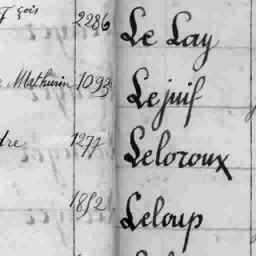 çois 2286 Le Lay
Mathurin 1093 Lejuif
dre 1277 Leloroux
1852 Leloup